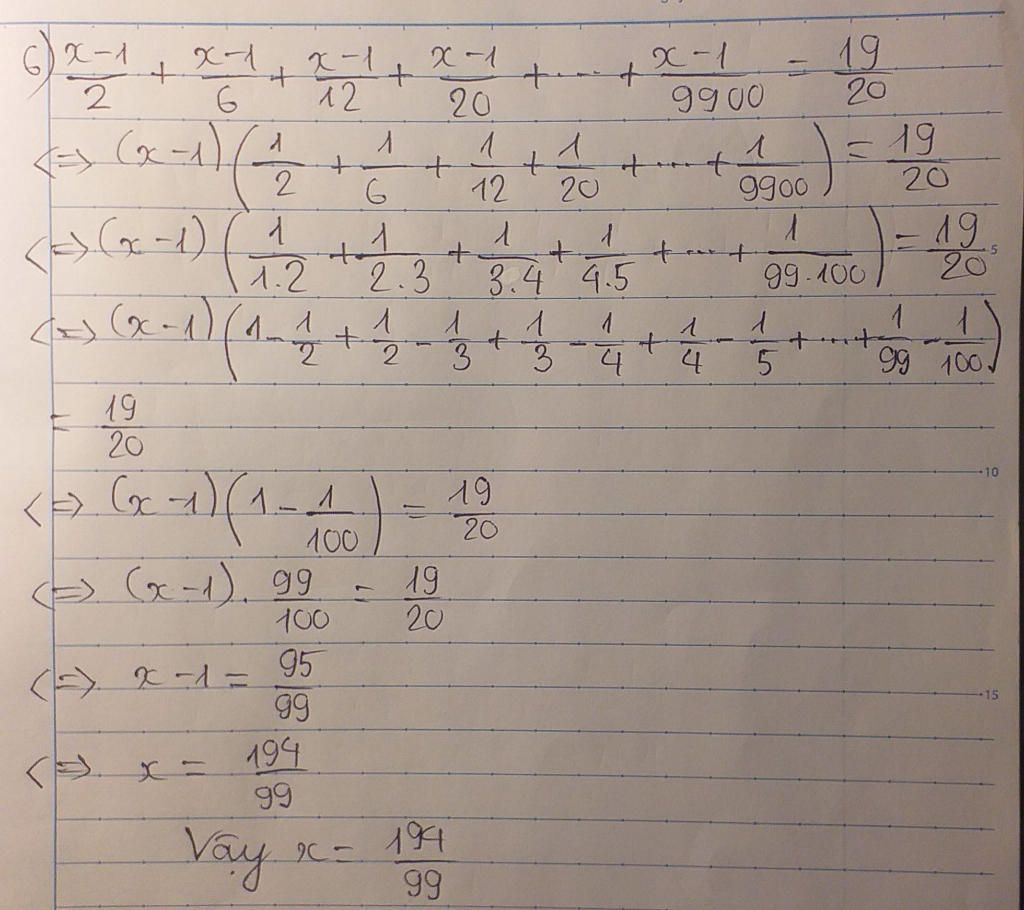 6) (x-1)/2 + (x-1)/6 + (x-1)/12 + (x-1)/20 + ... + (x-1)/9900 = 19/20
<=> (x-1)(1/2 + 1/6 + 1/12 + 1/20 + ... + 1/9900) = 19/20
<=> (x-1)(1/1.2 + 1/2.3 + 1/3.4 + 1/4.5 + ... + 1/99.100) = 19/20
5
<=> (x-1)(1 - 1/2 + 1/2 - 1/3 + 1/3 - 1/4 + 1/4 - 1/5 + ... + 1/99 - 1/100)
= 19/20
10
<=> (x-1)(1 - 1/100) = 19/20
<=> (x-1). 99/100 = 19/20
<=> x-1 = 95/99
15
<=> x = 194/99
Vậy x = 194/99